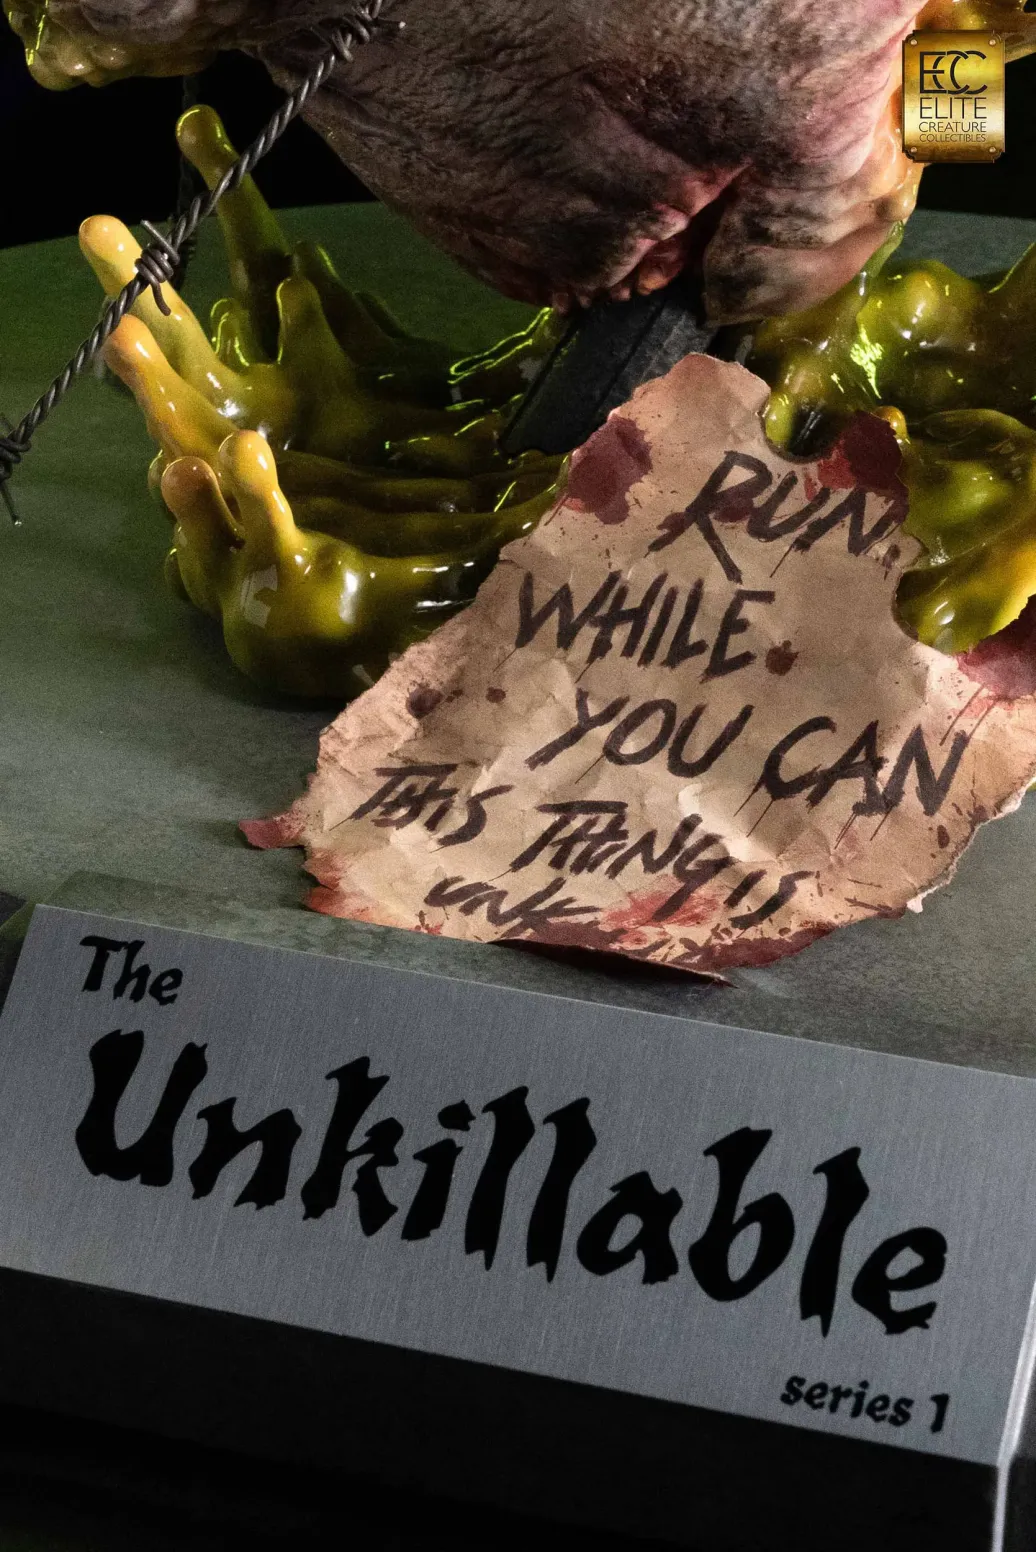 ECC
ELITE
CREATURE
COLLECTIBLES
RUN.
WHILE
YOU CAN
THIS THING IS
UNK
The
Unkillable
series 1